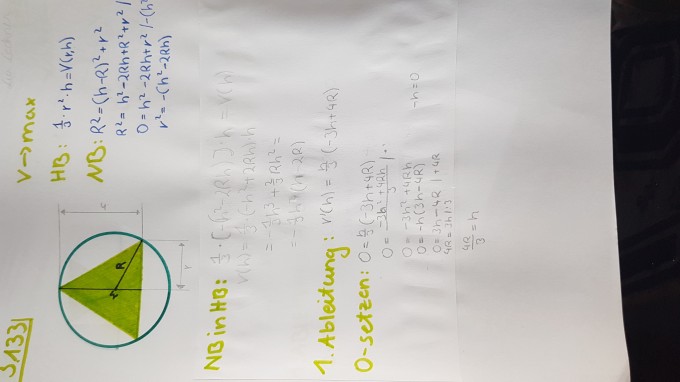 S133|
V→max
HB: 1/3 · r² · h = V(r,h)
NB: R² = (h-R)² + r²
R² = h² - 2Rh + R² + r² /
0 = h² - 2Rh + r² /-(h²
r² = -(h² - 2Rh)
h
R
r
NB in HB: 1/3 · [-(h² - 2Rh)] · h = V(h)
V(h) = 1/3 (-h² + 2Rh) h
= -1/3 h³ + 2/3 Rh² =
= -1/3 h² (h - 2R)
1. Ableitung: V'(h) = h/3 (-3h + 4R)
0-setzen: 0 = h/3 (-3h + 4R)
0 = (-3h² + 4Rh)/3 | ·
0 = -3h² + 4Rh
0 = -h(3h - 4R) -h = 0
0 = 3h - 4R | + 4R
4R = 3h | : 3
4R/3 = h